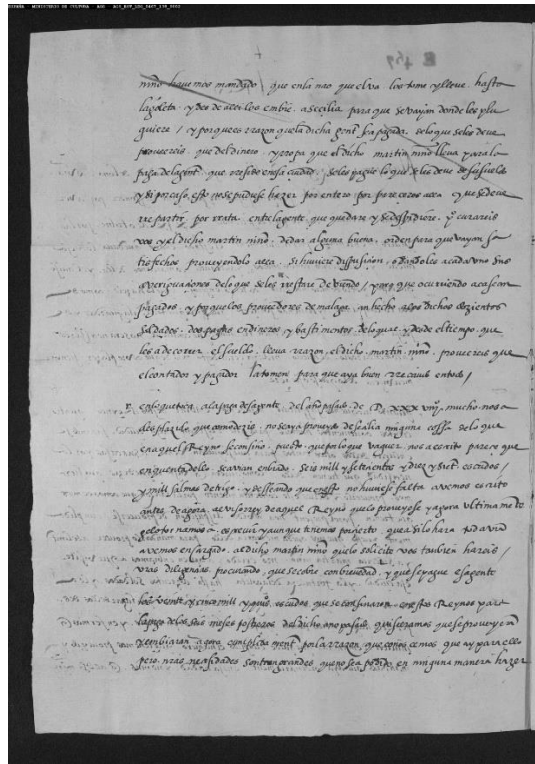 ESPAÑA MINISTERIO DE CULTURA AGS
+
niño havemos mandado / que en la nao que el va los tome y lleve hasta
la goleta y desde alli los embie a secilia para que se vayan donde les plu
guiere / y porque es rrazon que la dicha gente sea pagada de lo que se les deve
proveereis que del dinero y rropa que el dicho martin niño lleva para la
paga de la gente que rreside en esa ciudad se les pague lo que se les deve de su sueldo
y si por caso esto no se pudiese hazer por entero por pareceros aca que se deve
rrepartir por rrata entre la gente que quedare y se despidiere
vos y el dicho martin niño de dar alguna buena orden para que vayan sa
tisfechos proveyendolo aca si huviere disposicion o dandoles a cada uno sus
averiguaciones de lo que se les rrestare deviendo / para que ocurriendo aca sean
pagados y porque los proveedores de malaga an hecho a los dichos dozientos
soldados dos pagas en dineros y bastimentos de lo qual y desde el tiempo que
les a de correr el sueldo lleva rrazon el dicho martin niño proveereis que
el contador y pagador la tomen para que aya buen rrecaudo en todo /
en lo que toca a la paga desa gente del año pasado de D XXX viijº mucho nos a
desplazido que como dezis no se aya proveydo de secilia ninguna cossa de lo que
en aquel Reyno se consino puesto que por lo que vaguer nos a escrito parece que
en quenta dello se avian enbiado seis mill y setecientos y diez y siete escudos /
y mill salmas de trigo / y desseando que en esto no huviese falta avemos escrito
antes de agora al visorrey de aquel Reyno que lo proveyese y agora ultimamente
se lo tornamos a escrevir y aunque tenemos por cierto que asi lo hara todavia
avemos encargado al dicho martin niño que lo solicite vos tambien hareis /
vras diligencias procurando que se cobre con brevedad y que se pague esa gente
los veinte y cinco mill y quis escudos que se consinaron en estos Reynos para
la paga de los seis meses postreros del dicho año pasado quisieramos que se proveyeran
y enbiaran agora cumplidamente por la rrazon que conoscemos que ay para ello
pero nras necesidades son tan grandes que no se a podido en ninguna manera hazer